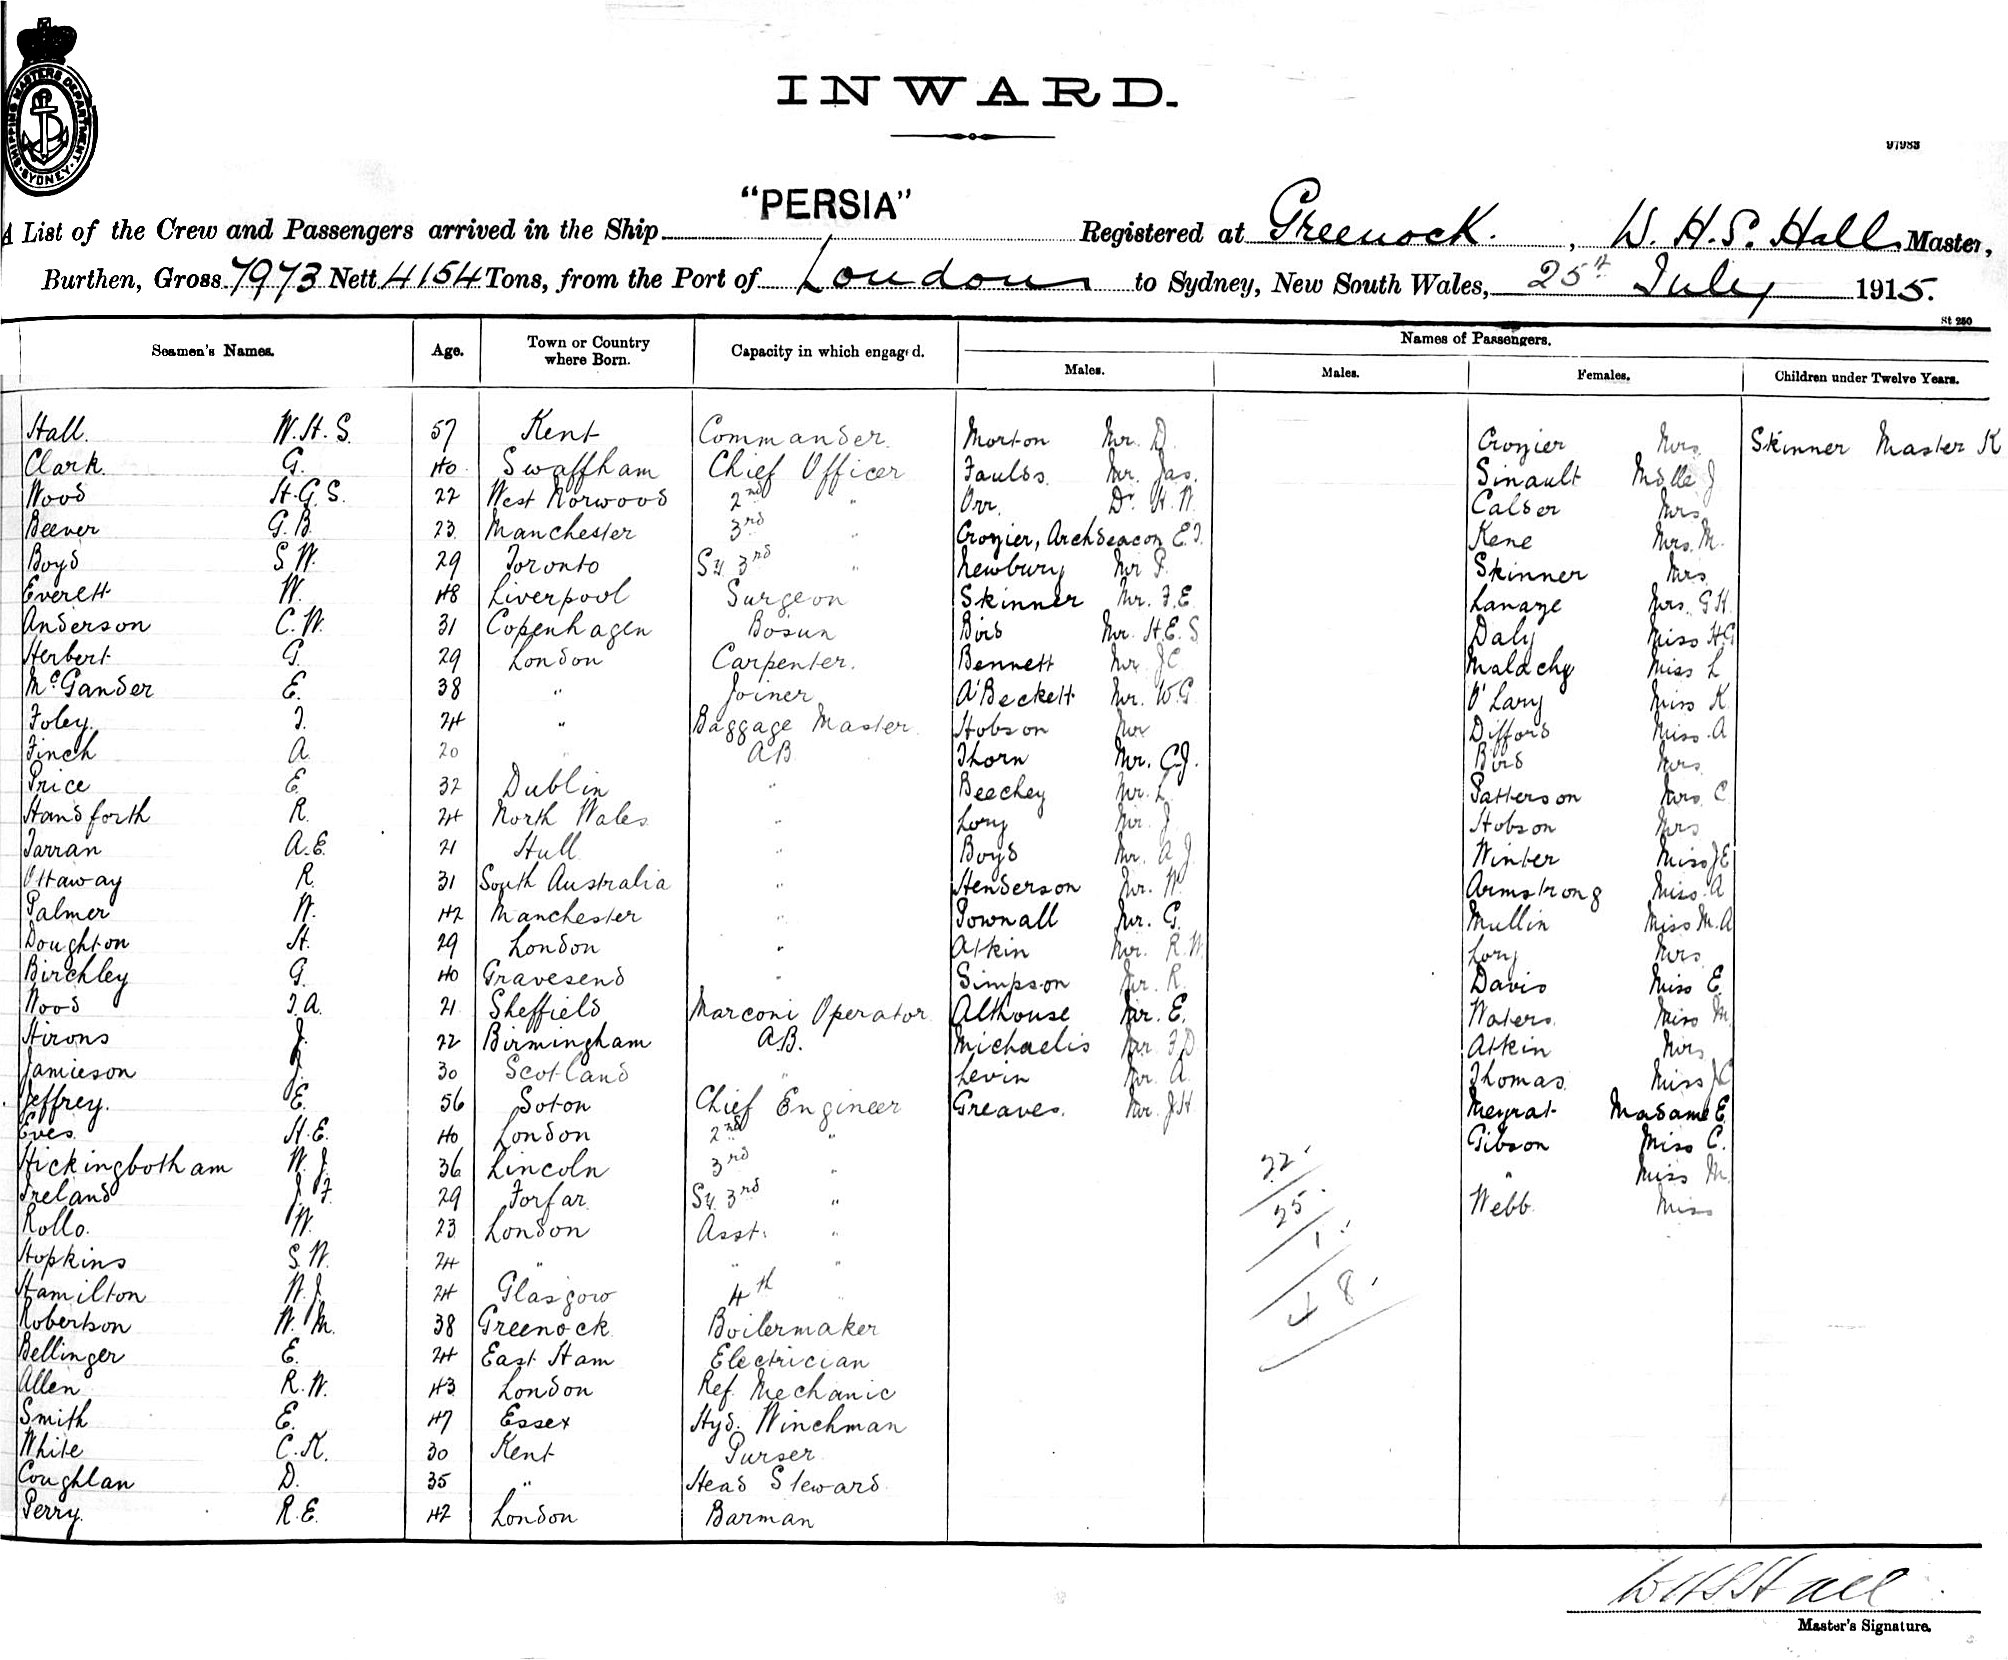 SHIPPING MASTERS DEPARTMENT SYDNEY
INWARD.
97983
"PERSIA"
A List of the Crew and Passengers arrived in the Ship Registered at Greenock. , W. H. S. Hall Master,
Burthen, Gross 7973 Nett 4154 Tons, from the Port of London to Sydney, New South Wales, 25th July 1915.
St 250
Seamen's Names. Age. Town or Country where Born. Capacity in which engaged. Names of Passengers.
Males. Males. Females. Children under Twelve Years.
Hall. W.H.S. 57 Kent Commander Morton Mr. D. Crozier Mrs Skinner Master K
Clark. G. 40 Swaffham Chief Officer Faulds. Mr. Jas. Sinault Mdlle J
Wood H.G.S. 22 West Norwood 2nd " Orr. Dr. H.W. Calder Mrs
Beever G.B. 23 Manchester 3rd " Crozier, Archdeacon E.J. Kene Mrs. M.
Boyd S.W. 29 Toronto Sy. 3rd " Newbury Mr P. Skinner Mrs
Everett W. 48 Liverpool Surgeon Skinner Mr. F.E. Lanaze Mrs. G.H.
Anderson C.W. 31 Copenhagen Bosun Bird Mr. H.E.S Daly Miss H.G
Herbert G. 29 London Carpenter. Bennett Mr. J.C. Malachy Miss L
McGander E. 38 " Joiner A'Beckett Mr. W.G. O'Lary Miss K
Foley. J. 24 " Baggage Master Hobson Mr Difford Miss. A
Finch A. 20 " A.B. Thorn Mr. C.J. Bird Mrs.
Price E. 32 Dublin " Beechey Mr. L. Patterson Mrs. C
Handforth R. 24 North Wales " Lory Mr. J. Hobson Mrs
Tarran A.E. 21 Hull " Boyd Mr. A.J. Winter Miss J.E
Ottaway R. 31 South Australia " Henderson Mr. W. Armstrong Miss. A
Palmer W. 42 Manchester " Pownall Mr. G. Mullin Miss M.A
Doughton H. 29 London " Atkin Mr. R.W. Lory Mrs
Birchley G. 40 Gravesend " Simpson Mr. R. Davis Miss E.
Wood J.A. 21 Sheffield Marconi Operator Althouse Mr. E. Waters Miss M.
Hirons J. 22 Birmingham A.B. Michaelis Mr F.D Atkin Mrs
Jamieson J. 30 Scotland " Levin Mr. A. Thomas. Miss J.C
Jeffrey. E. 56 Soton Chief Engineer Greaves. Mr. J.H. Meyrat Madame E.
Eves. H.E. 40 London 2nd " Gibson Miss C.
Hickingbotham W.J. 36 Lincoln 3rd " " Miss M.
Ireland J.F. 29 Forfar Sy. 3rd " Webb. Miss
Rollo. W. 23 London Asst. "
Hopkins S.W. 24 " " "
Hamilton W.J. 24 Glasgow 4th "
Robertson W.M. 38 Greenock Boilermaker
Bellinger E. 24 East Ham Electrician
Allen R.W. 43 London Ref. Mechanic
Smith E. 47 Essex Hyd. Winchman
White C.K. 30 Kent Purser
Coughlan D. 35 " Head Steward
Perry. R.E. 42 London Barman
22
25
1
48
W H S Hall
Master's Signature.